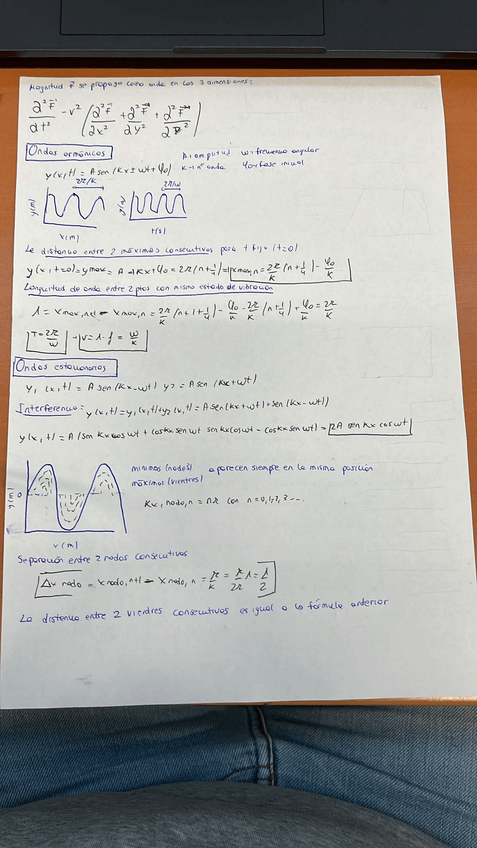 Magnitud F se propaga como onda en las 3 dimensiones:
∂²F⃗/∂t² - v² (∂²F⃗/∂x² + ∂²F⃗/∂y² + ∂²F⃗/∂z²)
Ondas armónicas
A: amplitud w: frecuencia angular
y(x,t) = A sen(kx ± wt + φ₀) k → nº onda φ₀: fase inicial
2π/k 2π/w
y(m) y(m)
x(m) t(s)
La distancia entre 2 máximos consecutivos para t fijo (t=0)
y(x,t=0) = ymax = A → kx + φ₀ = 2π(n+1/4) → xmax,n = 2π/k (n+1/4) - φ₀/k
Longitud de onda entre 2 ptos con mismo estado de vibración
λ = xmax,n+1 - xmax,n = 2π/k (n+1+1/4) - φ₀/k - 2π/k (n+1/4) + φ₀/k = 2π/k
T = 2π/w → v = λ · f = w/k
Ondas estacionarias
y₁(x,t) = A sen(kx-wt) y₂ = A sen(kx+wt)
Interferencia: y(x,t) = y₁(x,t) + y₂(x,t) = A sen(kx+wt) + sen(kx-wt))
y(x,t) = A(sen kx cos wt + cos kx sen wt sen kx cos wt - cos kx sen wt) = 2A sen kx cos wt
y(m) 0
mínimos (nodos) aparecen siempre en la misma posición
máximos (vientres)
kx, nodo,n = nπ con n=0,1,2,3...
x(m)
Separación entre 2 nodos consecutivos
Δx nodo = x nodo,n+1 - x nodo,n = π/k = π/2π λ = λ/2
La distancia entre 2 vientres consecutivos es igual a la fórmula anterior